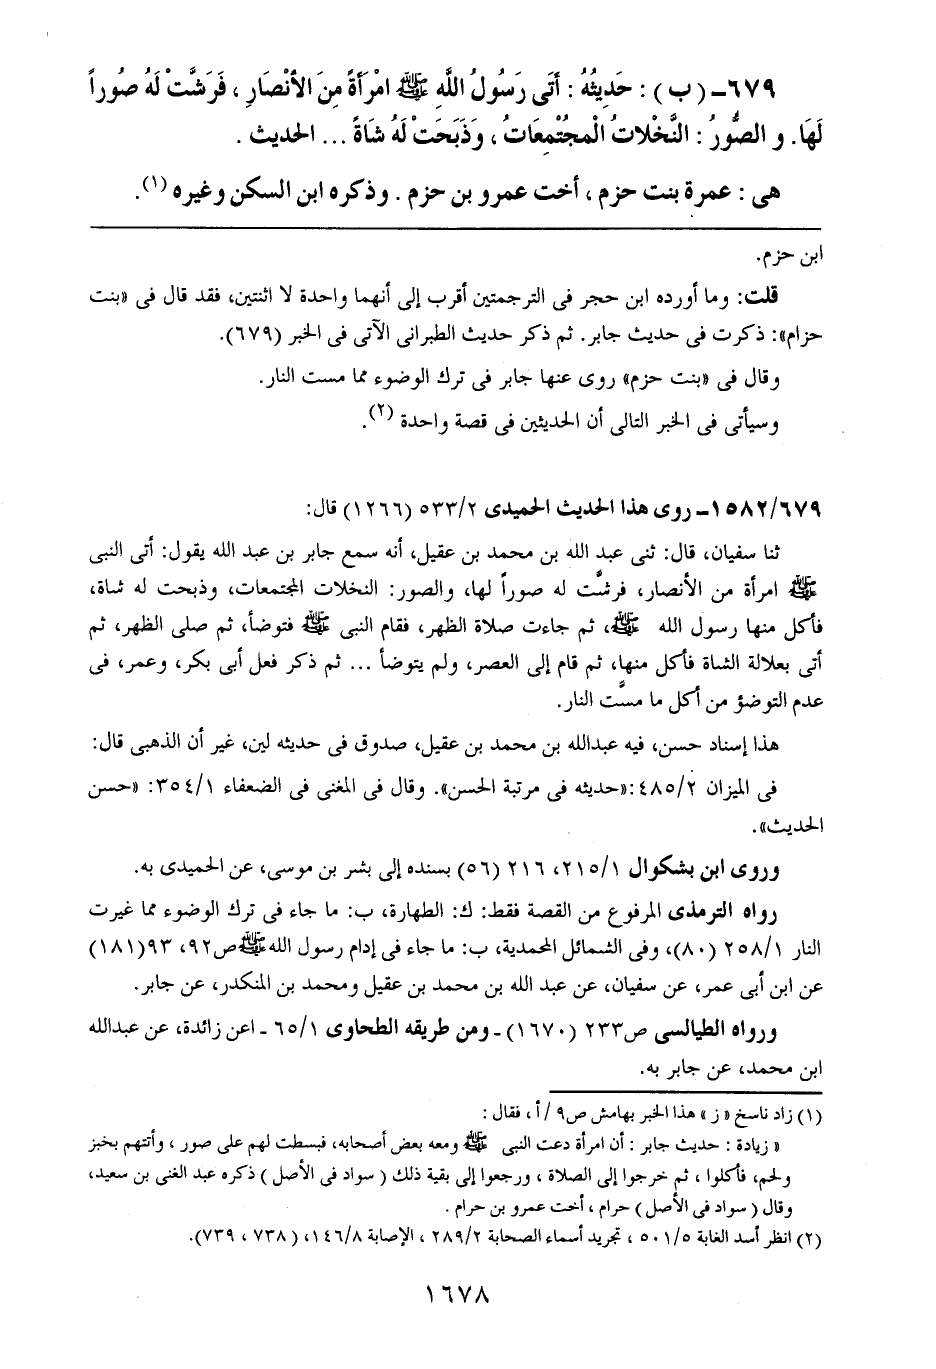 ٦٧٩ـ (ب) : حَدِيثُهُ : أَتَى رَسُولُ اللَّهِ ﷺ امْرَأَةً مِنَ الأَنْصَارِ ، فَرَشَّتْ لَهُ صُوراً
لَهَا. و الصُّورُ : النَّخْلاتُ الْمجُتْمِعَاتُ ، وَذَبَحَتْ لَهُ شَاةً ... الحديث .
هى : عمرة بنت حزم ، أخت عمرو بن حزم . وذكره ابن السكن وغيره (١).
ابن حزم.
قلت: وما أورده ابن حجر فى الترجمتين أقرب إلى أنهما واحدة لا اثنتين، فقد قال فى «بنت
حزام»: ذكرت فى حديث جابر. ثم ذكر حديث الطبرانى الآتى فى الخبر (٦٧٩).
وقال فى «بنت حزم» روى عنها جابر فى ترك الوضوء مما مست النار.
وسيأتى فى الخبر التالى أن الحديثين فى قصة واحدة (٢).
١٥٨٢/٦٧٩ـ روى هذا الحديث الحميدى ٥٣٣/٢ (١٢٦٦) قال:
ثنا سفيان، قال: ثنى عبد الله بن محمد بن عقيل، أنه سمع جابر بن عبد الله يقول: أتى النبى
ﷺ امرأة من الأنصار، فرشَّت له صوراً لها، والصور: النخلات المجتمعات، وذبحت له شاة،
فأكل منها رسول الله ﷺ، ثم جاءت صلاة الظهر، فقام النبى ﷺ فتوضأ، ثم صلى الظهر، ثم
أتى بعلالة الشاة فأكل منها، ثم قام إلى العصر، ولم يتوضأ ... ثم ذكر فعل أبى بكر، وعمر، فى
عدم التوضؤ من أكل ما مسَّت النار.
هذا إسناد حسن، فيه عبدالله بن محمد بن عقيل، صدوق فى حديثه لين، غير أن الذهبى قال:
فى الميزان ٤٨٥/٢ :«حديثه فى مرتبة الحسن». وقال فى المغنى فى الضعفاء ٣٥٤/١: «حسن
الحديث».
وروى ابن بشكوال ٢١٥/١، ٢١٦ (٥٦) بسنده إلى بشر بن موسى، عن الحميدى به.
رواه الترمذى المرفوع من القصة فقط: ك: الطهارة، ب: ما جاء فى ترك الوضوء مما غيرت
النار ٢٥٨/١ (٨٠)، وفى الشمائل المحمدية، ب: ما جاء فى إدام رسول الله ﷺ ص٩٢، ٩٣(١٨١)
عن ابن أبى عمر، عن سفيان، عن عبد الله بن محمد بن عقيل ومحمد بن المنكدر، عن جابر.
ورواه الطيالسى ص٢٣٣ (١٦٧٠) ـ ومن طريقه الطحاوى ٦٥/١ ـ اعن زائدة، عن عبدالله
ابن محمد، عن جابر به.
(١) زاد ناسخ « ز » هذا الخبر بهامش ص٩ /أ ، فقال :
« زيادة : حديث جابر : أن امرأة دعت النبى ﷺ ومعه بعض أصحابه، فبسطت لهم على صور ، وأتتهم بخبز
ولحم، فأكلوا ، ثم خرجوا إلى الصلاة ، ورجعوا إلى بقية ذلك ( سواد فى الأصل ) ذكره عبد الغنى بن سعيد،
وقال ( سواد فى الأصل ) حرام ، أخت عمرو بن حرام .
(٢) انظر أسد الغابة ٥٠١/٥ ، تجريد أسماء الصحابة ٢٨٩/٢ ، الإصابة ١٤٦/٨، ( ٧٣٨ ، ٧٣٩).
١٦٧٨